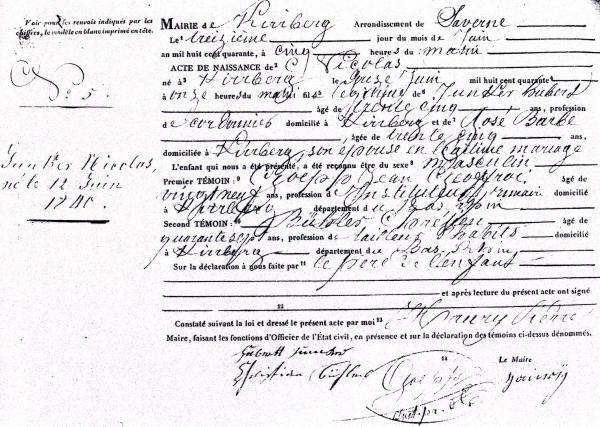 Voir pour les renvois indiqués par les
chiffres, le modèle en blanc imprimé en tête.
N.º 5.
Junker Nicolas,
né le 12 Juin
1840.
MAIRIE de Kirrberg Arrondissement de Saverne
Le treizième jour du mois de Juin
an mil huit cent quarante, à cinq heures du matin
ACTE DE NAISSANCE de Nicolas
né à Kirrberg le Juin mil huit cent quarante
à onze heures du fil légitime de Junker Hubert
âgé de trente cinq ans, profession
de cordonnier domicilié à Kirrberg et de Rose Barbe
âgée de trente cinq ans,
domiciliée à Kirrberg son épouse en légitime mariage
L'enfant qui nous a été présenté, a été reconnu être du sexe masculin
Premier TÉMOIN : Goepp Jean âgé de
vingt neuf ans, profession d'Instituteur primaire domicilié
à Kirrberg département du Bas Rhin
Second TÉMOIN : Christian âgé de
quarante sept ans, profession de tailleur d'habits domicilié
à Kirrberg département du Bas-Rhin,
Sur la déclaration à nous faite par le père de l'enfant
et après lecture du présent acte ont signé
Constaté suivant la loi et dressé le présent acte par moi Pierre
Maire, faisant les fonctions d'Officier de l'État civil, en présence et sur la déclaration des témoins ci-dessus dénommés.
Le Maire
Hubert Junker
Christian
Goepp